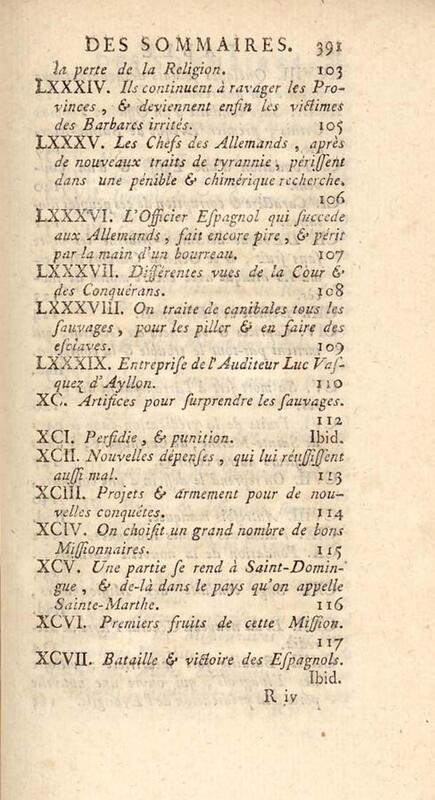 DES SOMMAIRES. 391
la perte de la Religion. 103
LXXXIV. Ils continuent à ravager les Pro-
vinces, & deviennent enfin les victimes
des Barbares irrités. 105
LXXXV. Les Chefs des Allemands, après
de nouveaux traits de tyrannie, périſſent
dans une pénible & chimérique recherche.
106
LXXXVI. L'Officier Eſpagnol qui ſuccede
aux Allemands, fait encore pire, & périt
par la main d'un bourreau. 107
LXXXVII. Différentes vues de la Cour &
des Conquérans. 108
LXXXVIII. On traite de canibales tous les
ſauvages, pour les piller & en faire des
eſclaves. 109
LXXXIX. Entrepriſe de l'Auditeur Luc Vaſ-
quez d'Ayllon. 110
XC. Artifices pour ſurprendre les ſauvages.
112
XCI. Perfidie, & punition. Ibid.
XCII. Nouvelles dépenſes, qui lui réuſſiſſent
auſſi mal. 113
XCIII. Projets & armement pour de nou-
velles conquêtes. 114
XCIV. On choiſit un grand nombre de bons
Miſſionnaires. 115
XCV. Une partie ſe rend à Saint-Domin-
gue, & de-là dans le pays qu'on appelle
Sainte-Marthe. 116
XCVI. Premiers fruits de cette Miſſion.
117
XCVII. Bataille & victoire des Eſpagnols.
Ibid.
R iv